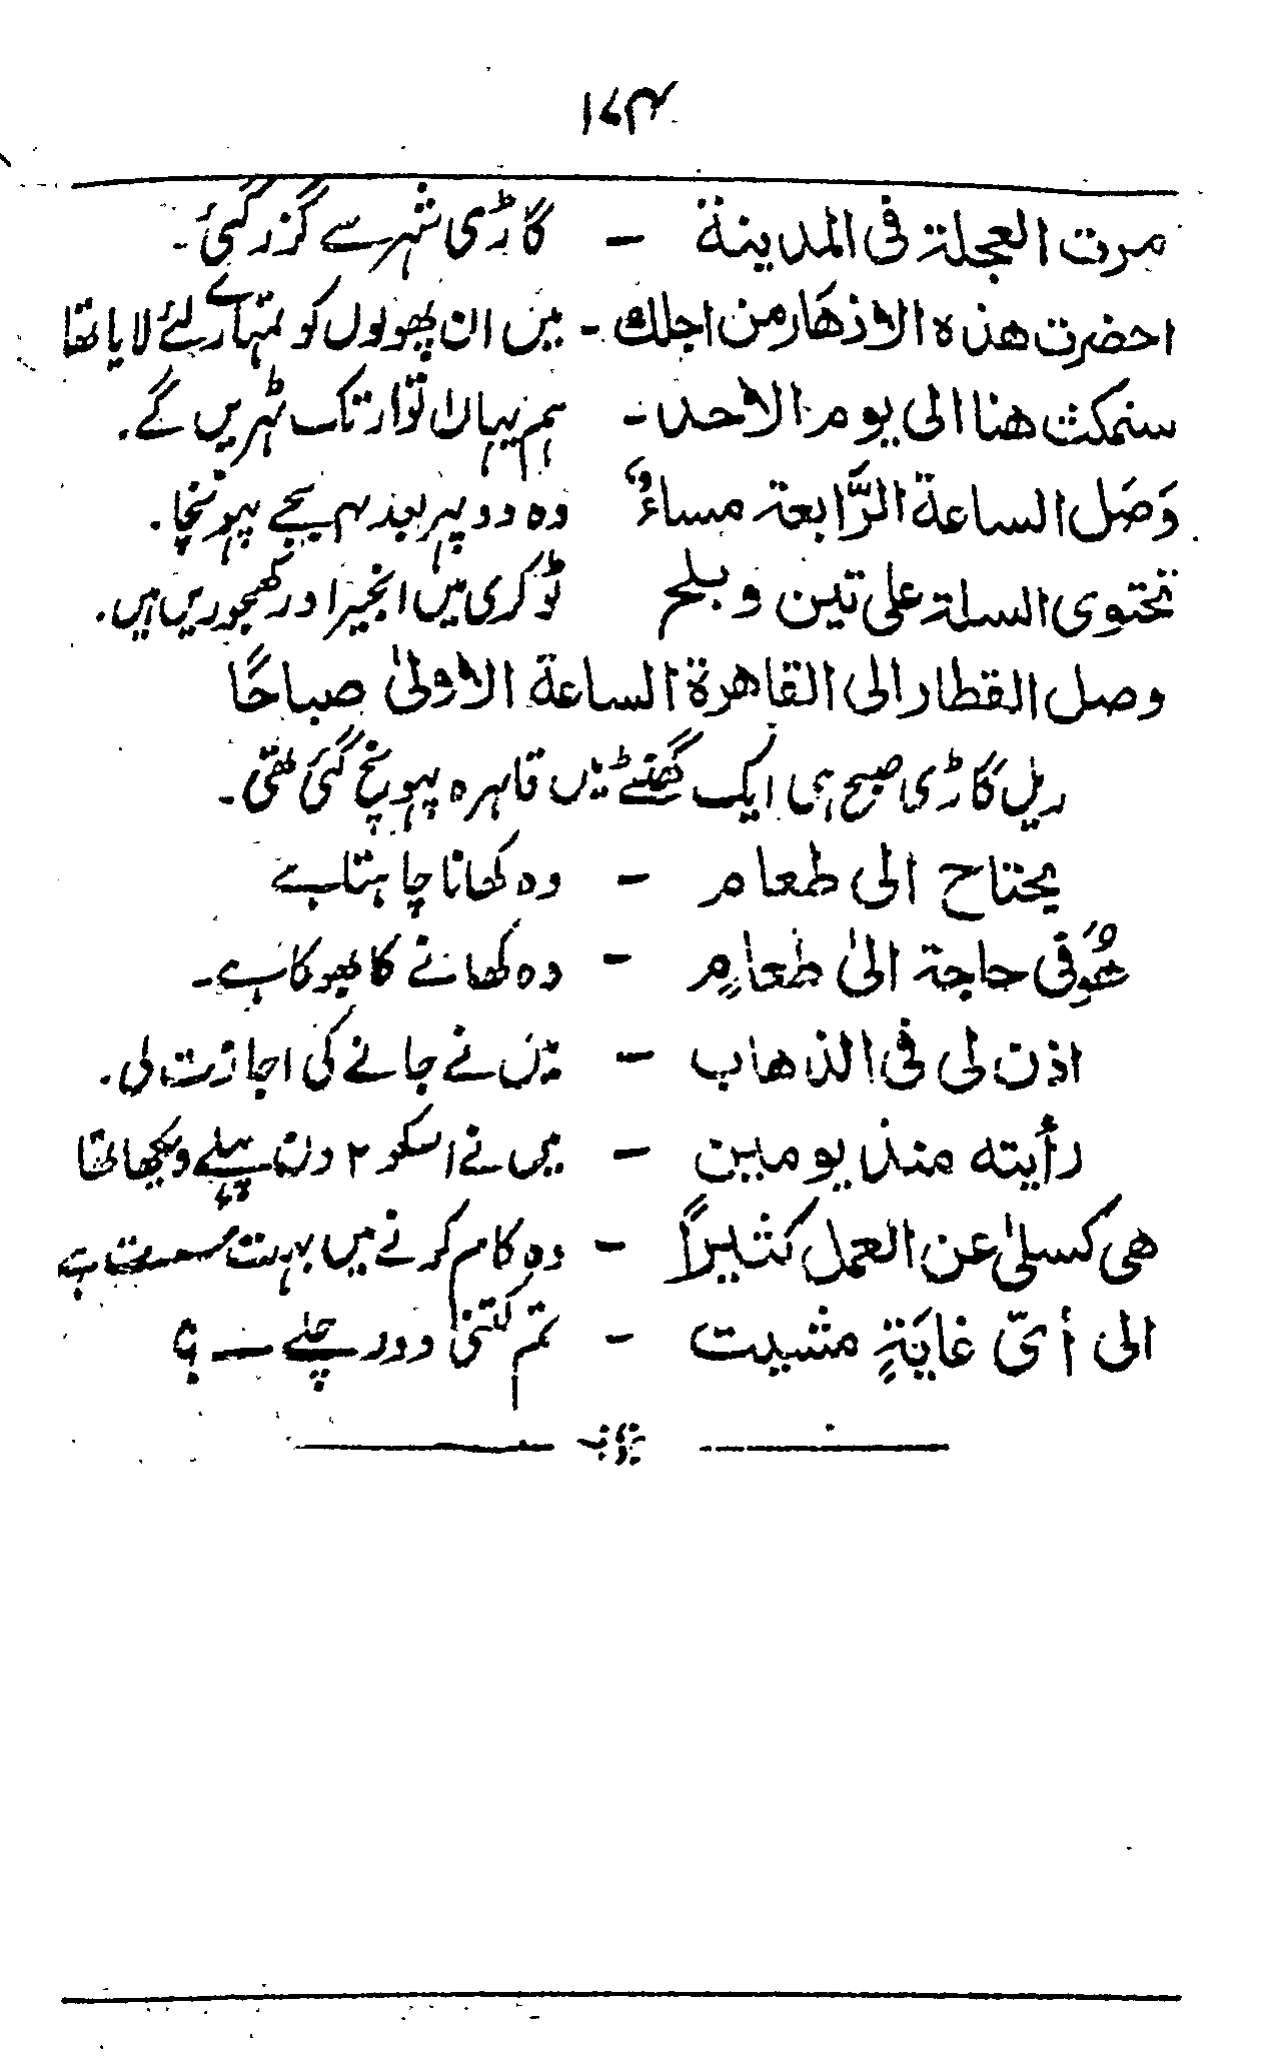 ۱۷۴
مرت العجلة فى المدينة - گاڑی شہر سے گزر گئی۔
احضرت هذه الازهَار من اجلك - میں ان پھولوں کو تمہارے لئے لایا تھا
سنمكث هنا الى يوم الاحد - ہم یہاں اتوار تک ٹہریں گے۔
وَصَل الساعة الرَّابعة مساءً وہ دوپہر بعد ۴ بجے پہونچا۔
تحتوى السلة على تين وبلح ٹوکری میں انجیر اور کھجوریں ہیں۔
وصل القطار الى القاهرة الساعة الاولىٰ صباحًا
ریل گاڑی صبح ہی ایک گھنٹے میں قاہرہ پہونچ گئی تھی۔
يحتاح الى طعام - وہ کھانا چاہتا ہے
هُوَ فى حاجة الىٰ طعامٍ - وہ کھانے کا بھوکا ہے۔
اذن لى فى الذهاب - میں نے جانے کی اجازت لی۔
رأيته منذ يومين - میں نے اسکو ۲ دن پہلے دیکھا تھا
هى كسلىٰ عن العمل كثيراً - وہ کام کرنے میں بہت سست ہے
الى أىّ غايَةٍ مشيت - تم کتنی دور چلے ؟